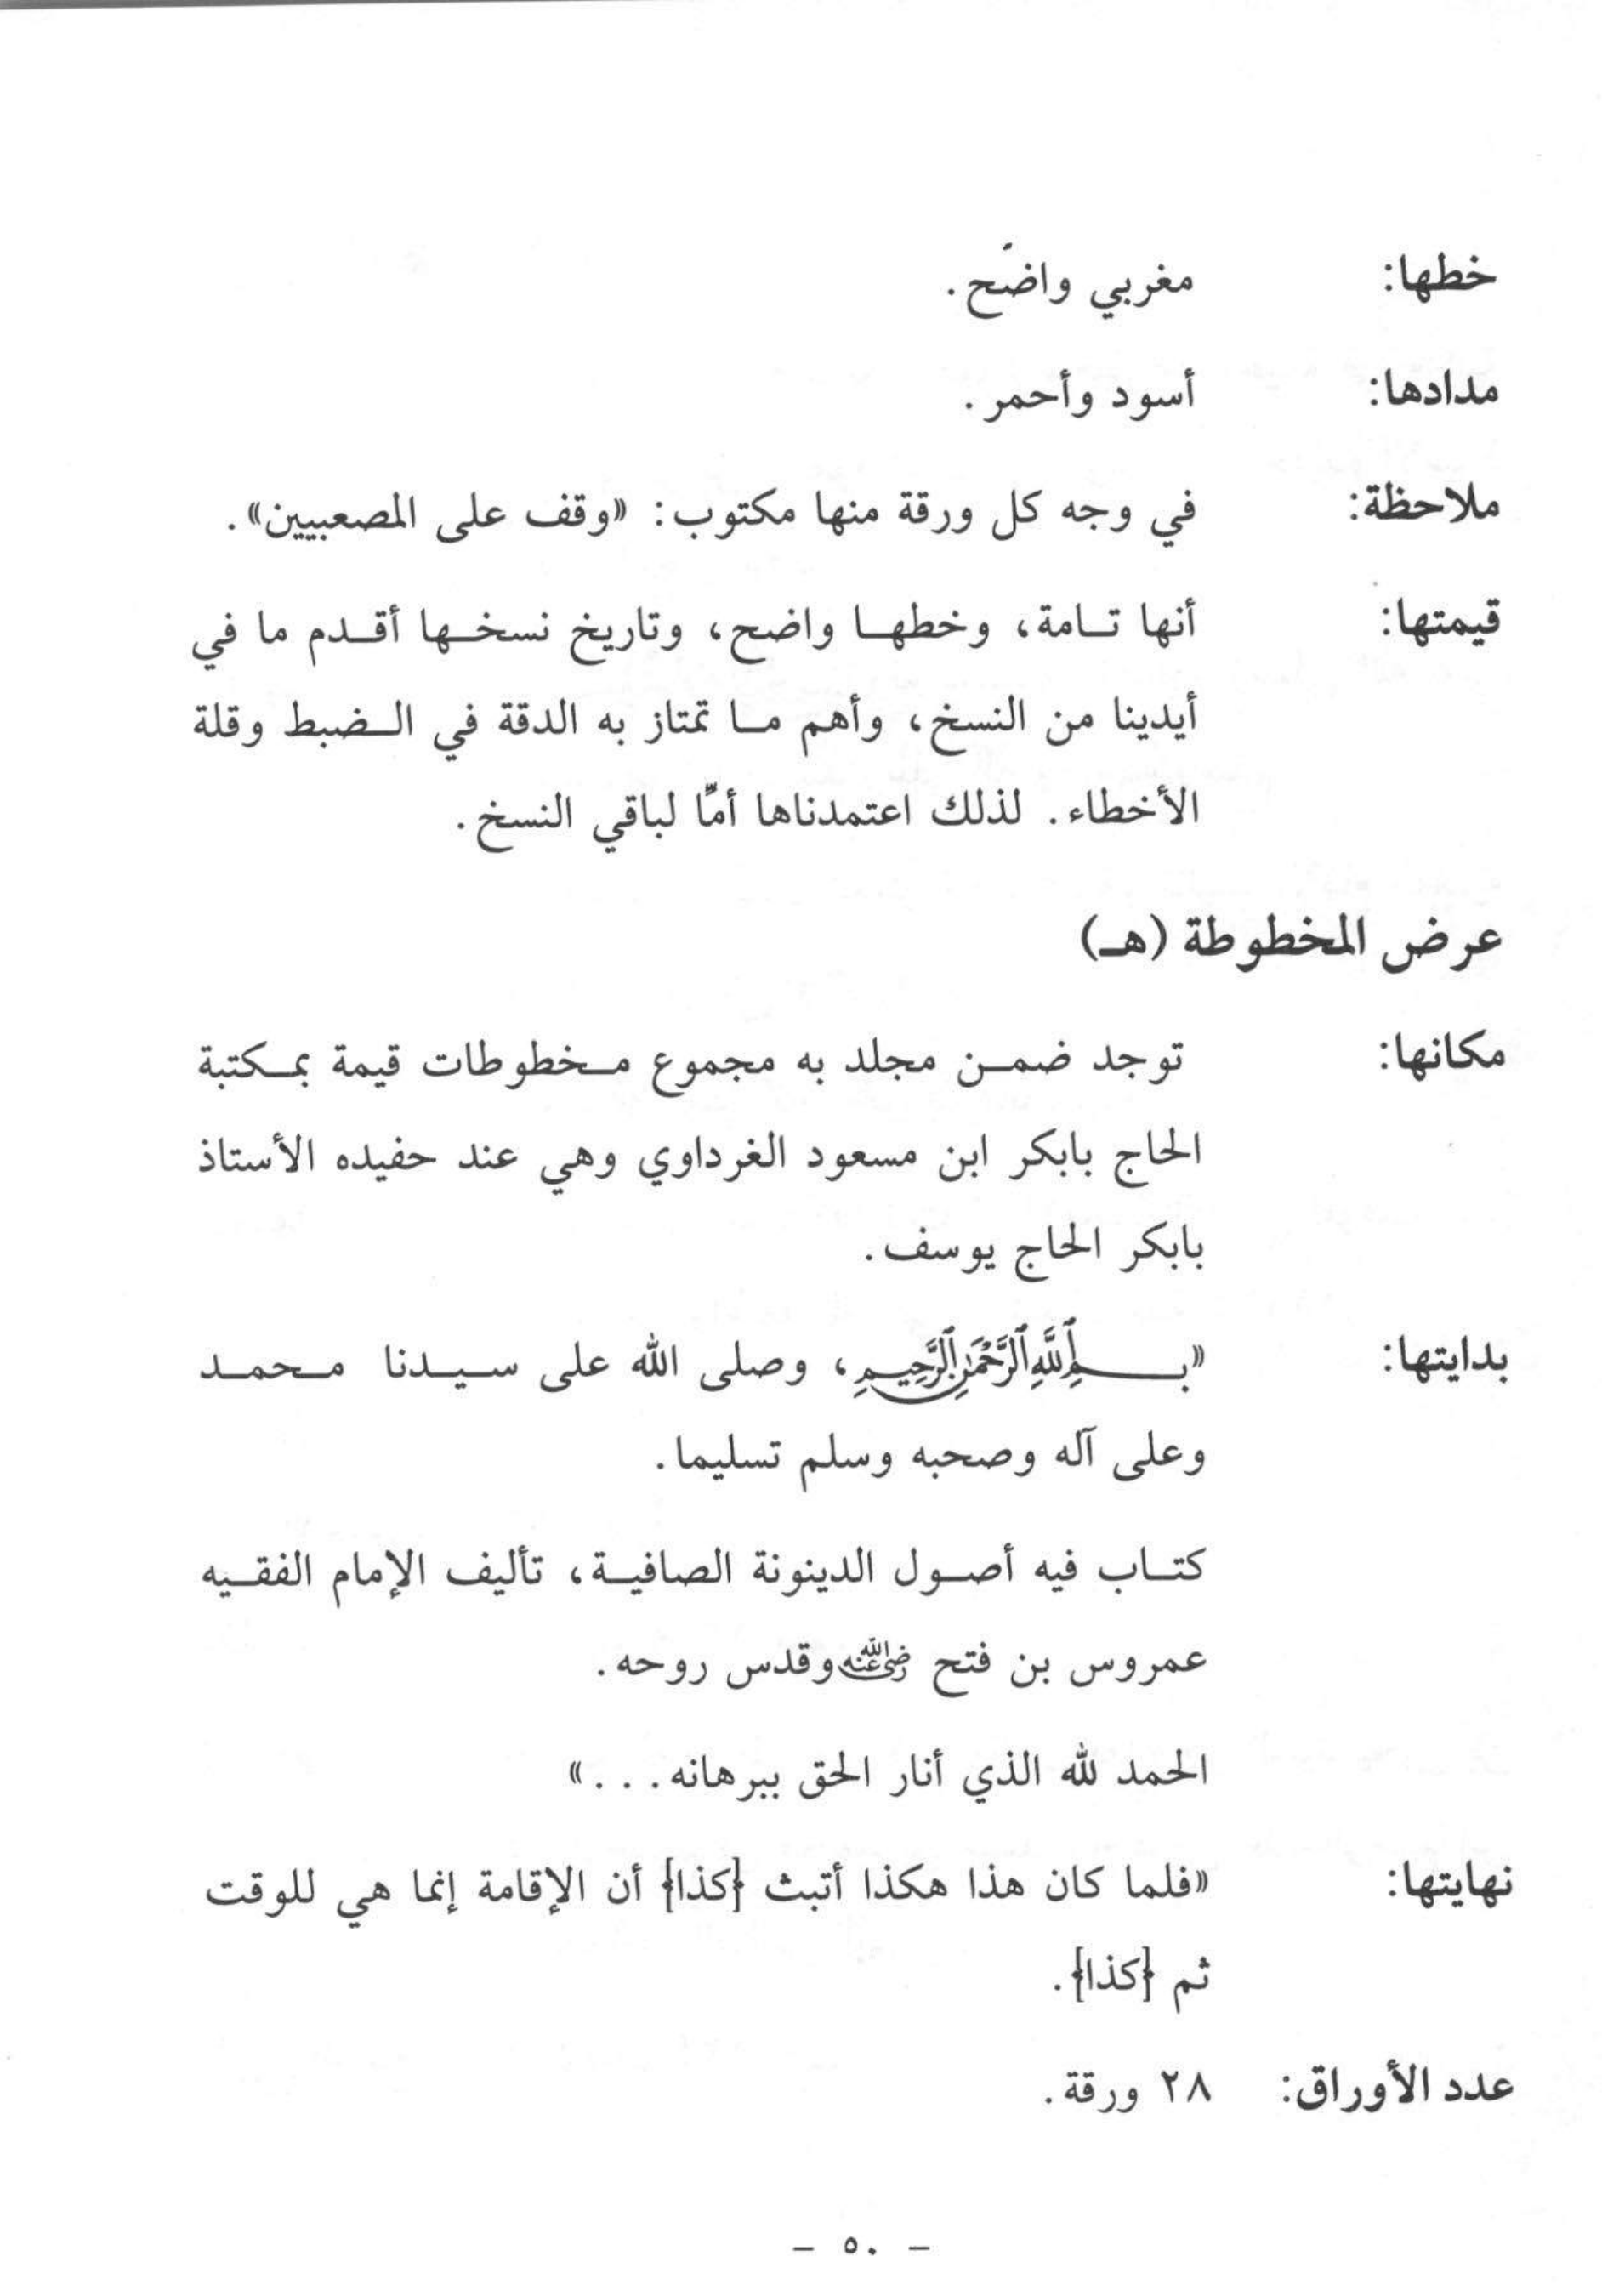 خطها: مغربي واضح.
مدادها: أسود وأحمر.
ملاحظة: في وجه كل ورقة منها مكتوب: «وقف على المصعبيين».
قيمتها: أنها تامة، وخطها واضح، وتاريخ نسخها أقدم ما في
أيدينا من النسخ، وأهم ما تمتاز به الدقة في الضبط وقلة
الأخطاء. لذلك اعتمدناها أمًّا لباقي النسخ.
عرض المخطوطة (هـ)
مكانها: توجد ضمن مجلد به مجموع مخطوطات قيمة بمكتبة
الحاج بابكر ابن مسعود الغرداوي وهي عند حفيده الأستاذ
بابكر الحاج يوسف.
بدايتها: «بِسْمِ ٱللَّهِ ٱلرَّحْمَٰنِ ٱلرَّحِيمِ، وصلى الله على سيدنا محمد
وعلى آله وصحبه وسلم تسليما.
كتاب فيه أصول الدينونة الصافية، تأليف الإمام الفقيه
عمروس بن فتح رضي الله عنه وقدس روحه.
الحمد لله الذي أنار الحق ببرهانه...»
نهايتها: «فلما كان هذا هكذا أتبث {كذا} أن الإقامة إنما هي للوقت
ثم {كذا}.
عدد الأوراق: ٢٨ ورقة.
- ٥٠ -